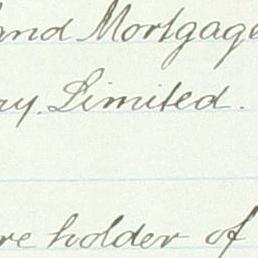 and Mortgage
ry. Limited.
re holder of